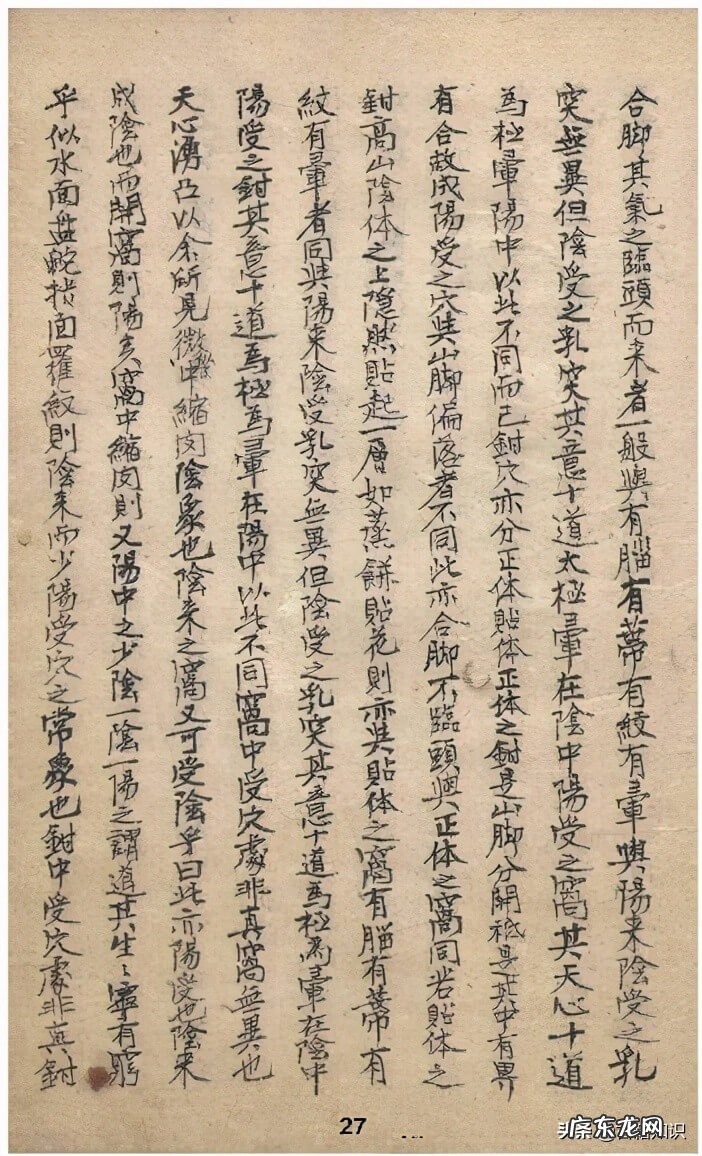 合脚其氣之臨頭而来者一般與有腦有蒂有紋有暈與陽来陰受之乳
突無異但陰受之乳突其意十道太極暈在陰中陽受之窩其天心十道
為極暈陽中以此不同而已鉗穴亦分正体貼体正体之鉗是山脚分開祗是其中有界
有合故成陽受之穴與山脚偏落者不同此亦合脚不臨頭與正体之窩同若貼体之
鉗高山陰体之上隱然貼起一層如蒸餅貼花則亦與貼体之窩有腦有蒂有
紋有暈者同與陽来陰受乳突無異但陰受之乳突其意十道為極為暈在陰中
陽受之鉗其意十道為極為暈在陽中以此不同窩中受穴處非真窩無異也
天心湧凸以余所見微中縮肉陰象也陰来之窩又可受陰乎曰此亦陽受也陰来
成陰也而開窩則陽矣窩中縮肉則又陽中之少陰一陰一陽之謂道其生々寧有窮
乎似水面盘蛇指面羅紋則陰来而少陽受穴之常象也鉗中受穴處非真鉗
27
头条
知识
广东龙网